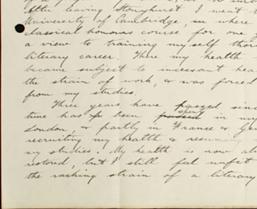 After leaving Stonyhurst I went
University of Cambridge, in where
classical honours course for one
a view to training myself thor
literary career. There my health
became subject to incessant hea
the strain of work, & was forced
from my studies.
Three years have passed since
time has been spent in my
London, & partly in France & Ge
recruiting my health & resum
my studies. My health is now al
restored, but I still felt unfit
the racking strain of a literary